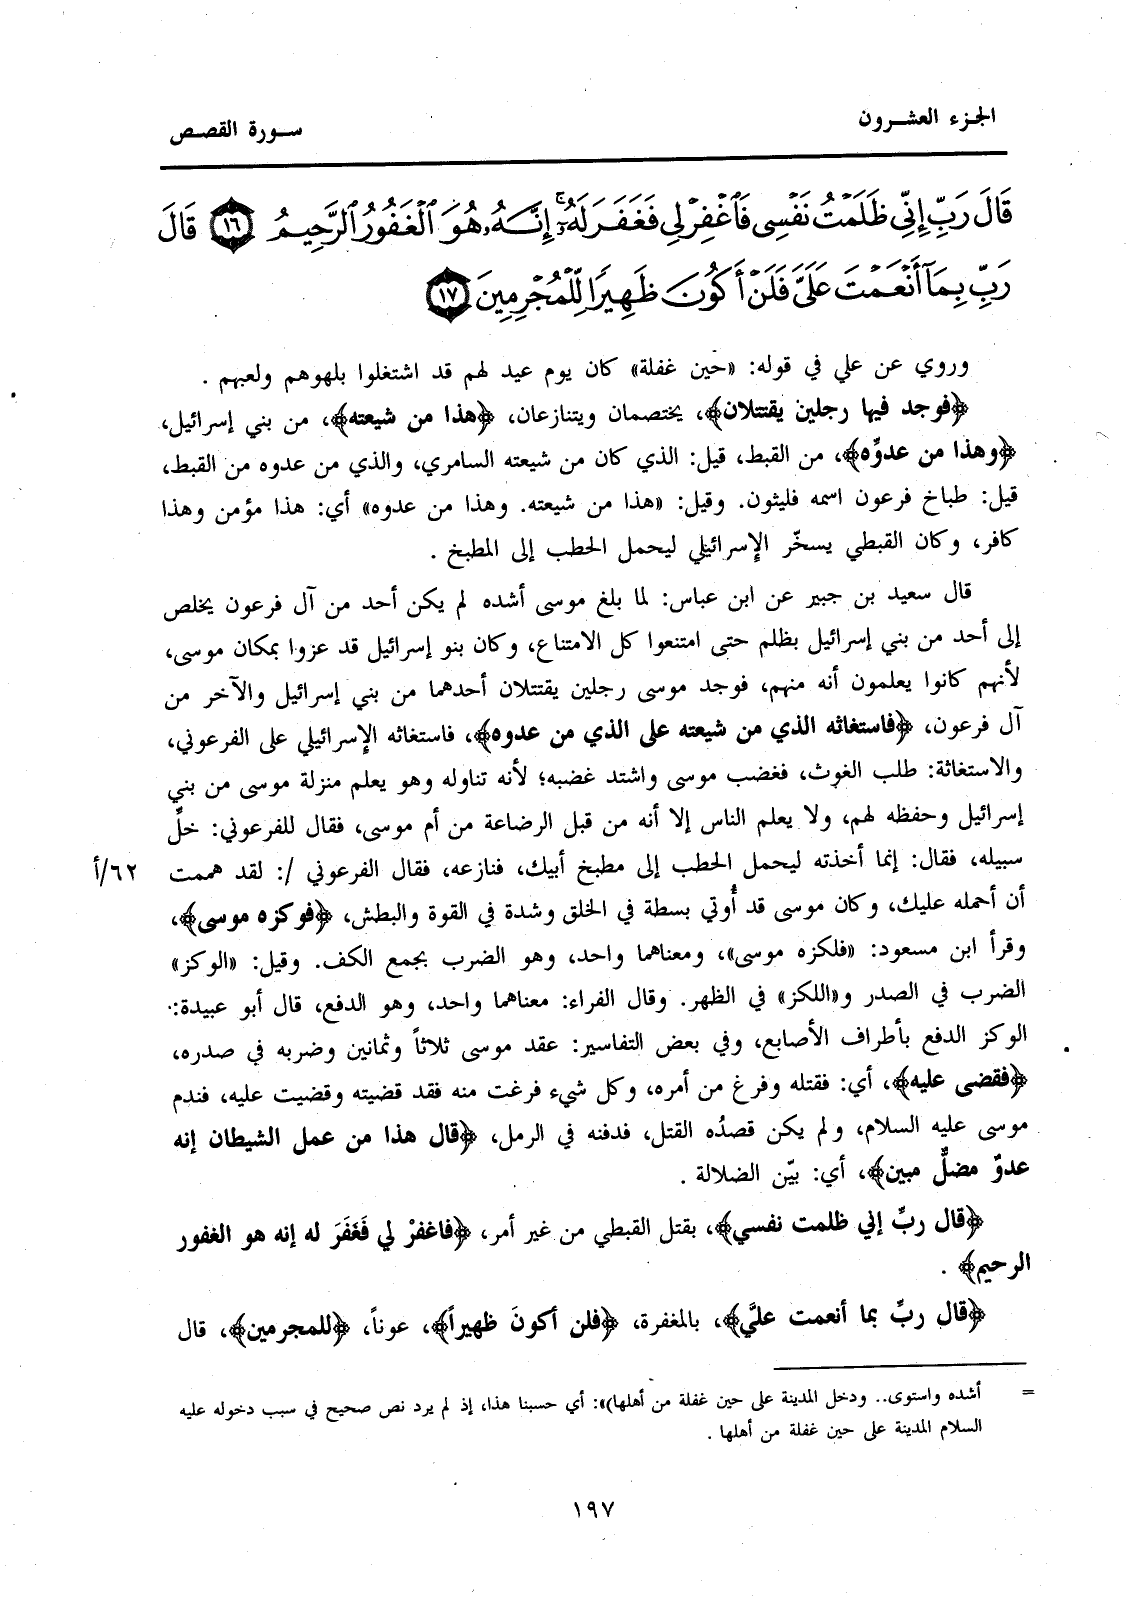 الجزء العشرون
سورة القصص
قَالَ رَبِّ إِنِّي ظَلَمْتُ نَفْسِي فَاغْفِرْ لِي فَغَفَرَ لَهُۥٓ ۚ إِنَّهُۥ هُوَ الْغَفُورُ الرَّحِيمُ ١٦ قَالَ
رَبِّ بِمَآ أَنْعَمْتَ عَلَيَّ فَلَنْ أَكُونَ ظَهِيرًا لِّلْمُجْرِمِينَ ١٧
وروي عن علي في قوله: «حين غفلة» كان يوم عيد لهم قد اشتغلوا بلهوهم ولعبهم .
﴿فوجد فيها رجلين يقتتلان﴾، يختصمان ويتنازعان، ﴿هذا من شيعته﴾، من بني إسرائيل،
﴿وهذا من عدوِّه﴾، من القبط، قيل: الذي كان من شيعته السامري، والذي من عدوه من القبط،
قيل: طباخ فرعون اسمه فليثون. وقيل: «هذا من شيعته. وهذا من عدوه» أي: هذا مؤمن وهذا
كافر، وكان القبطي يسخّر الإسرائيلي ليحمل الحطب إلى المطبخ .
قال سعيد بن جبير عن ابن عباس: لما بلغ موسى أشده لم يكن أحد من آل فرعون يخلص
إلى أحد من بني إسرائيل بظلم حتى امتنعوا كل الامتناع، وكان بنو إسرائيل قد عزوا بمكان موسى،
لأنهم كانوا يعلمون أنه منهم، فوجد موسى رجلين يقتتلان أحدهما من بني إسرائيل والآخر من
آل فرعون، ﴿فاستغاثه الذي من شيعته على الذي من عدوه﴾، فاستغاثه الإسرائيلي على الفرعوني،
والاستغاثة: طلب الغوث، فغضب موسى واشتد غضبه؛ لأنه تناوله وهو يعلم منزلة موسى من بني
إسرائيل وحفظه لهم، ولا يعلم الناس إلا أنه من قبل الرضاعة من أم موسى، فقال للفرعوني: خلِّ
سبيله، فقال: إنما أخذته ليحمل الحطب إلى مطبخ أبيك، فنازعه، فقال الفرعوني /: لقد هممت
٦٢/أ
أن أحمله عليك، وكان موسى قد أُوتي بسطة في الخلق وشدة في القوة والبطش، ﴿فوكزه موسى﴾،
وقرأ ابن مسعود: «فلكزه موسى»، ومعناهما واحد، وهو الضرب بجمع الكف. وقيل: «الوكز»
الضرب في الصدر و«اللكز» في الظهر. وقال الفراء: معناهما واحد، وهو الدفع، قال أبو عبيدة:
الوكز الدفع بأطراف الأصابع، وفي بعض التفاسير: عقد موسى ثلاثاً وثمانين وضربه في صدره،
﴿فقضى عليه﴾، أي: فقتله وفرغ من أمره، وكل شيء فرغت منه فقد قضيته وقضيت عليه، فندم
موسى عليه السلام، ولم يكن قصدُه القتل، فدفنه في الرمل، ﴿قال هذا من عمل الشيطان إنه
عدوٌ مضلٌ مبين﴾، أي: بيّن الضلالة .
﴿قال ربِّ إني ظلمت نفسي﴾، بقتل القبطي من غير أمر، ﴿فاغفرْ لي فَغَفَرَ له إنه هو الغفور
الرحيم﴾ .
﴿قال ربِّ بما أنعمت عليَّ﴾، بالمغفرة، ﴿فلن أكونَ ظهيراً﴾، عوناً، ﴿للمجرمين﴾، قال
= أشده واستوى.. ودخل المدينة على حين غفلة من أهلها)»: أي حسبنا هذا، إذ لم يرد نص صحيح في سبب دخوله عليه
السلام المدينة على حين غفلة من أهلها .
١٩٧